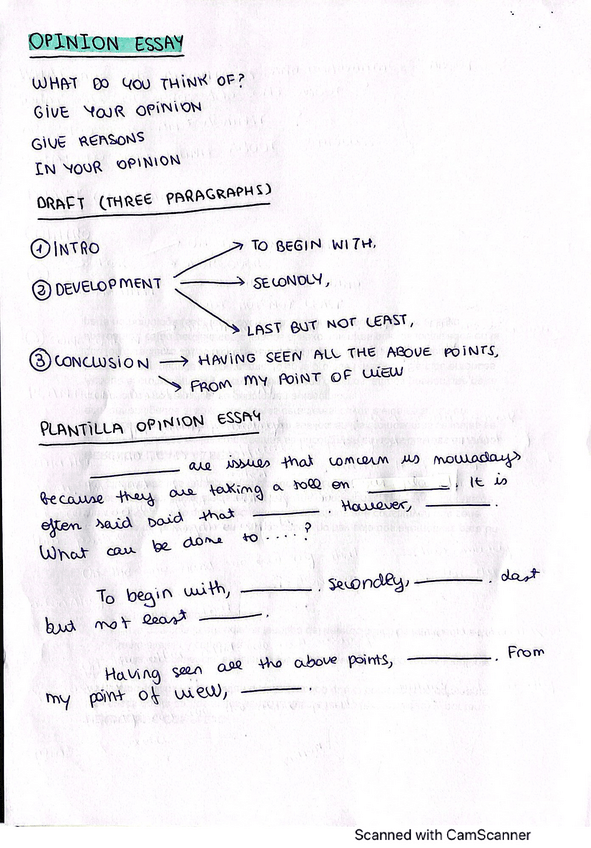 OPINION ESSAY
WHAT DO YOU THINK OF?
GIVE YOUR OPINION
GIVE REASONS
IN YOUR OPINION
DRAFT (THREE PARAGRAPHS)
① INTRO
TO BEGIN WITH,
② DEVELOPMENT
SECONDLY,
LAST BUT NOT LEAST,
③ CONCLUSION → HAVING SEEN ALL THE ABOVE POINTS,
FROM MY POINT OF VIEW
PLANTILLA OPINION ESSAY
______ are issues that concern us nowadays
because they are taking a toll on ______. It is
often said said that ______. However, ______.
What can be done to.....?
To begin with, ______. Secondly, ______. Last
but not least ______.
Having seen all the above points, ______. From
my point of view, ______.
Scanned with CamScanner